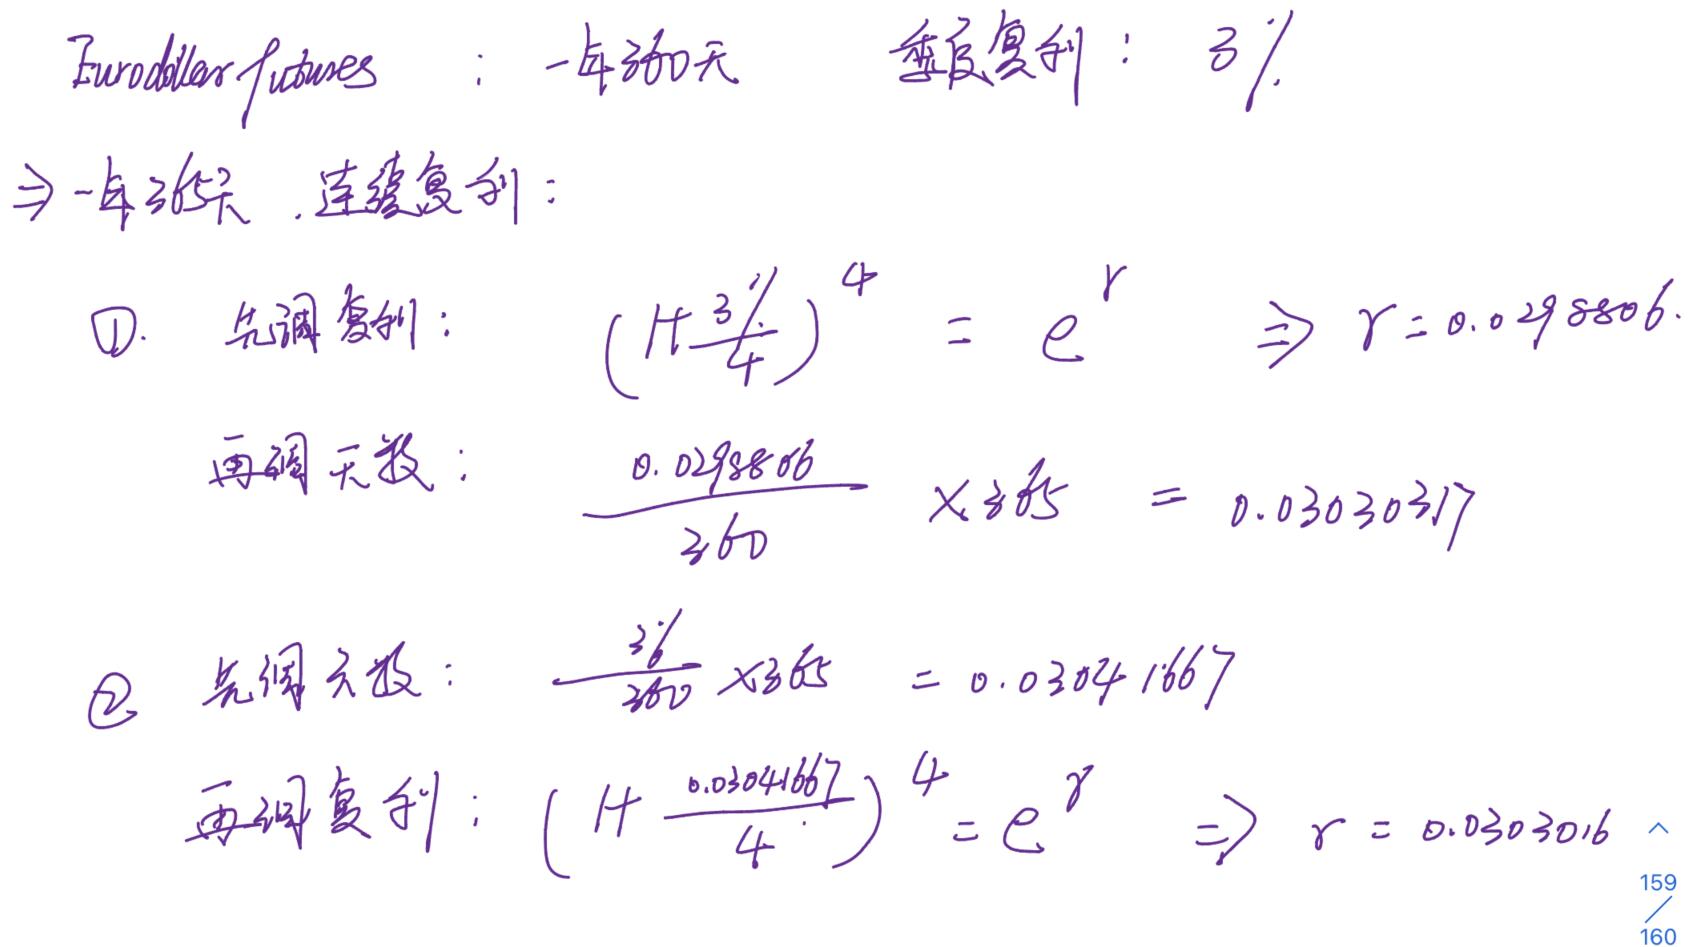 Eurodollar futures : 一年360天 季度复利: 3%
⇒ 一年365天, 连续复利:
①. 先调复利: (1+3%/4)^4 = e^r ⇒ r = 0.0298806.
再调天数: 0.0298806/360 ×365 = 0.03030317
② 先调天数: 3%/360 ×365 = 0.03041667
再调复利: (1+0.03041667/4)^4 = e^r ⇒ r = 0.0303016
159/160